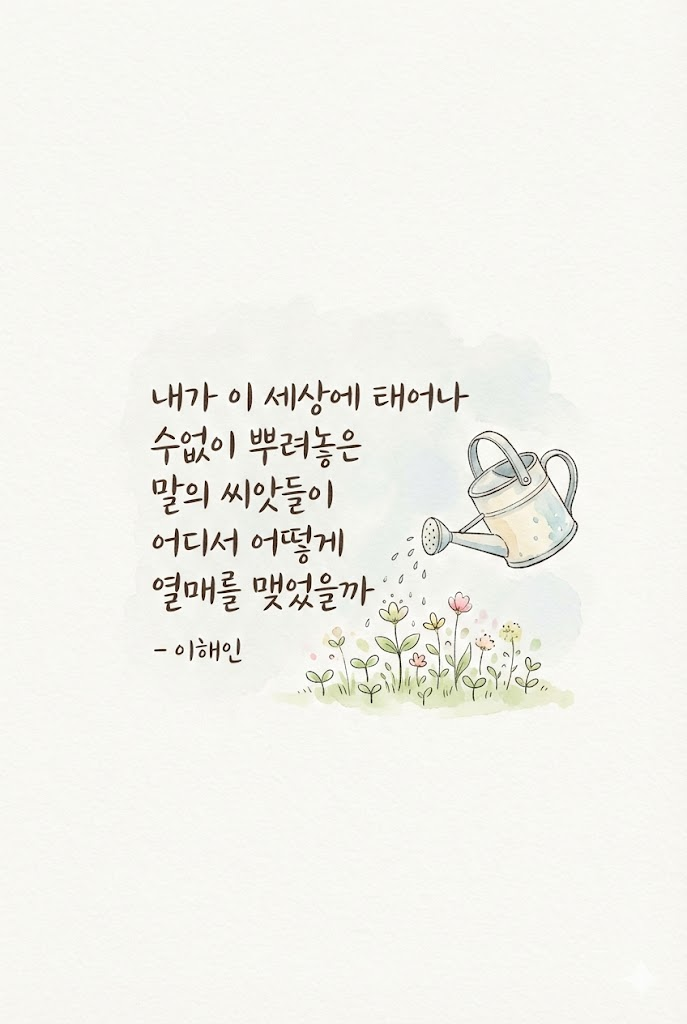 내가 이 세상에 태어나
수없이 뿌려놓은
말의 씨앗들이
어디서 어떻게
열매를 맺었을까
- 이해인